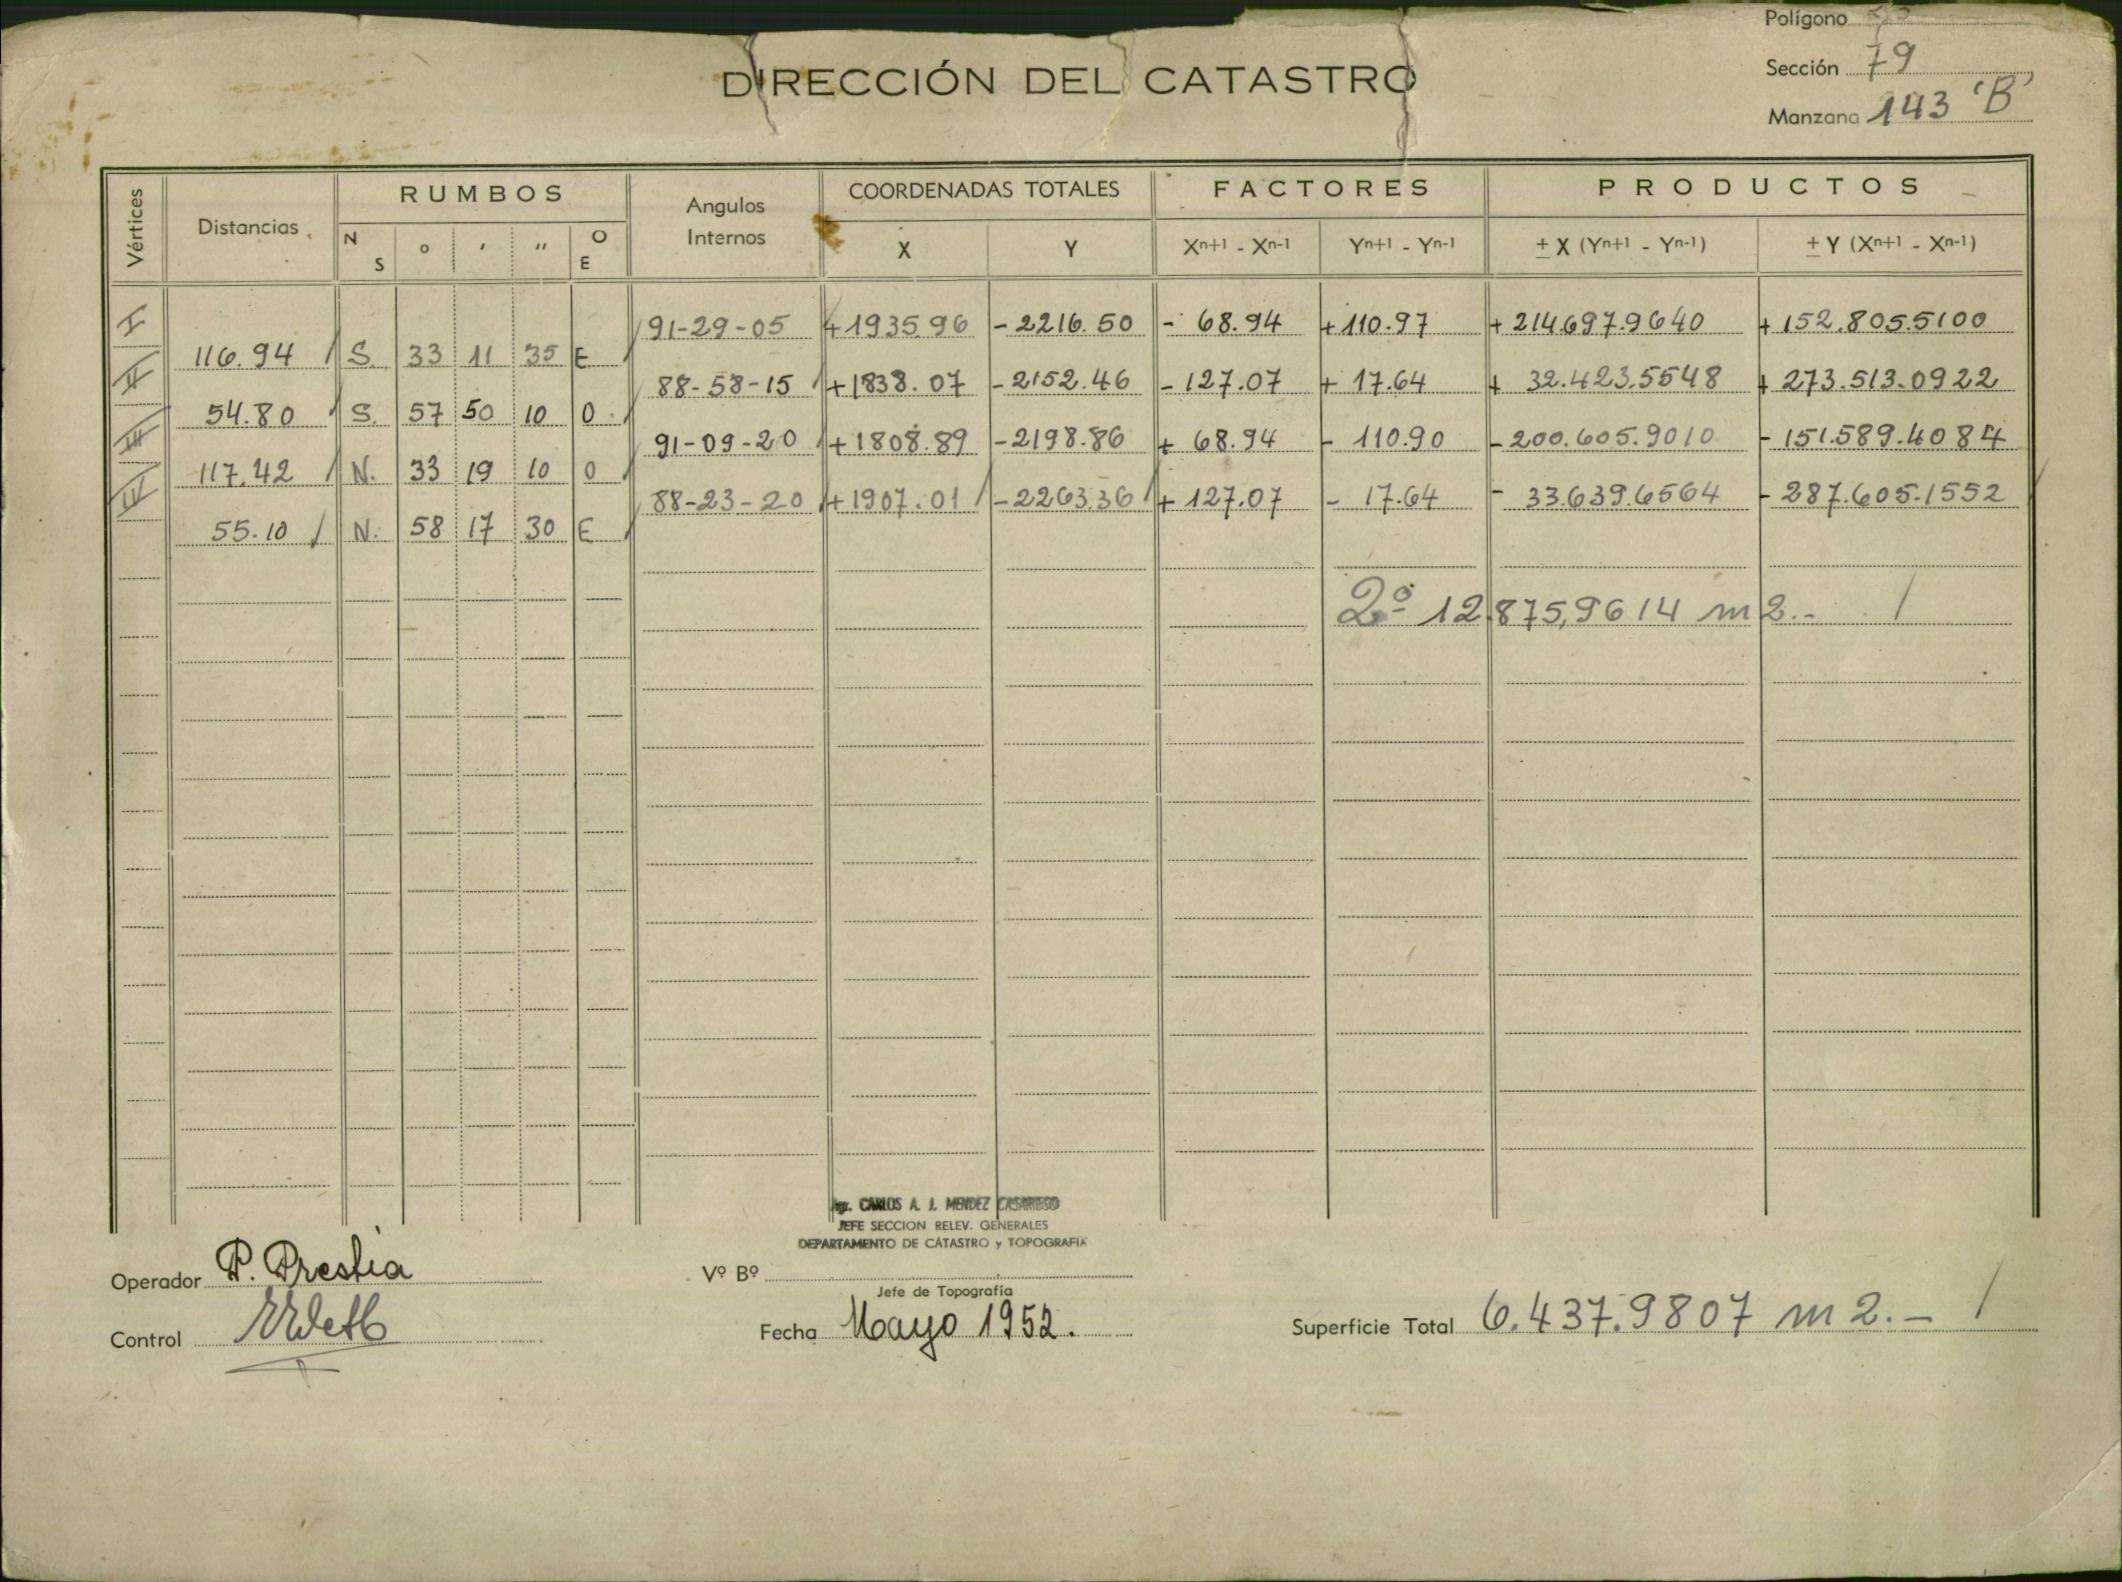 Polígono
DIRECCIÓN DEL CATASTRO
Sección 79
Manzana 143 'B'
Vértices Distancias RUMBOS Angulos Internos COORDENADAS TOTALES FACTORES PRODUCTOS
N S o ' '' O E X Y Xn+1 - Xn-1 Yn+1 - Yn-1 ± X (Yn+1 - Yn-1) ± Y (Xn+1 - Xn-1)
I 91-29-05 +1935.96 -2216.50 - 68.94 +110.97 +214.697.9640 +152.805.5100
116.94 S. 33 11 35 E
II 88-58-15 +1838.07 -2152.46 -127.07 + 17.64 + 32.423.5548 +273.513.0922
54.80 S. 57 50 10 O
III 91-09-20 +1808.89 -2198.86 + 68.94 - 110.90 -200.605.9010 -151.589.4084
117.42 N. 33 19 10 O
IV 88-23-20 +1907.01 -2263.36 + 127.07 - 17.64 - 33.639.6564 -287.605.1552
55.10 N. 58 17 30 E
2º 12.875,9614 m2.-
Ing. CARLOS A. J. MENDEZ CASARIEGO
JEFE SECCION RELEV. GENERALES
DEPARTAMENTO DE CATASTRO y TOPOGRAFIA
Operador P. Prestia
Vº Bº
Jefe de Topografía
Control
Fecha Mayo 1952.
Superficie Total 6.437.9807 m2.-